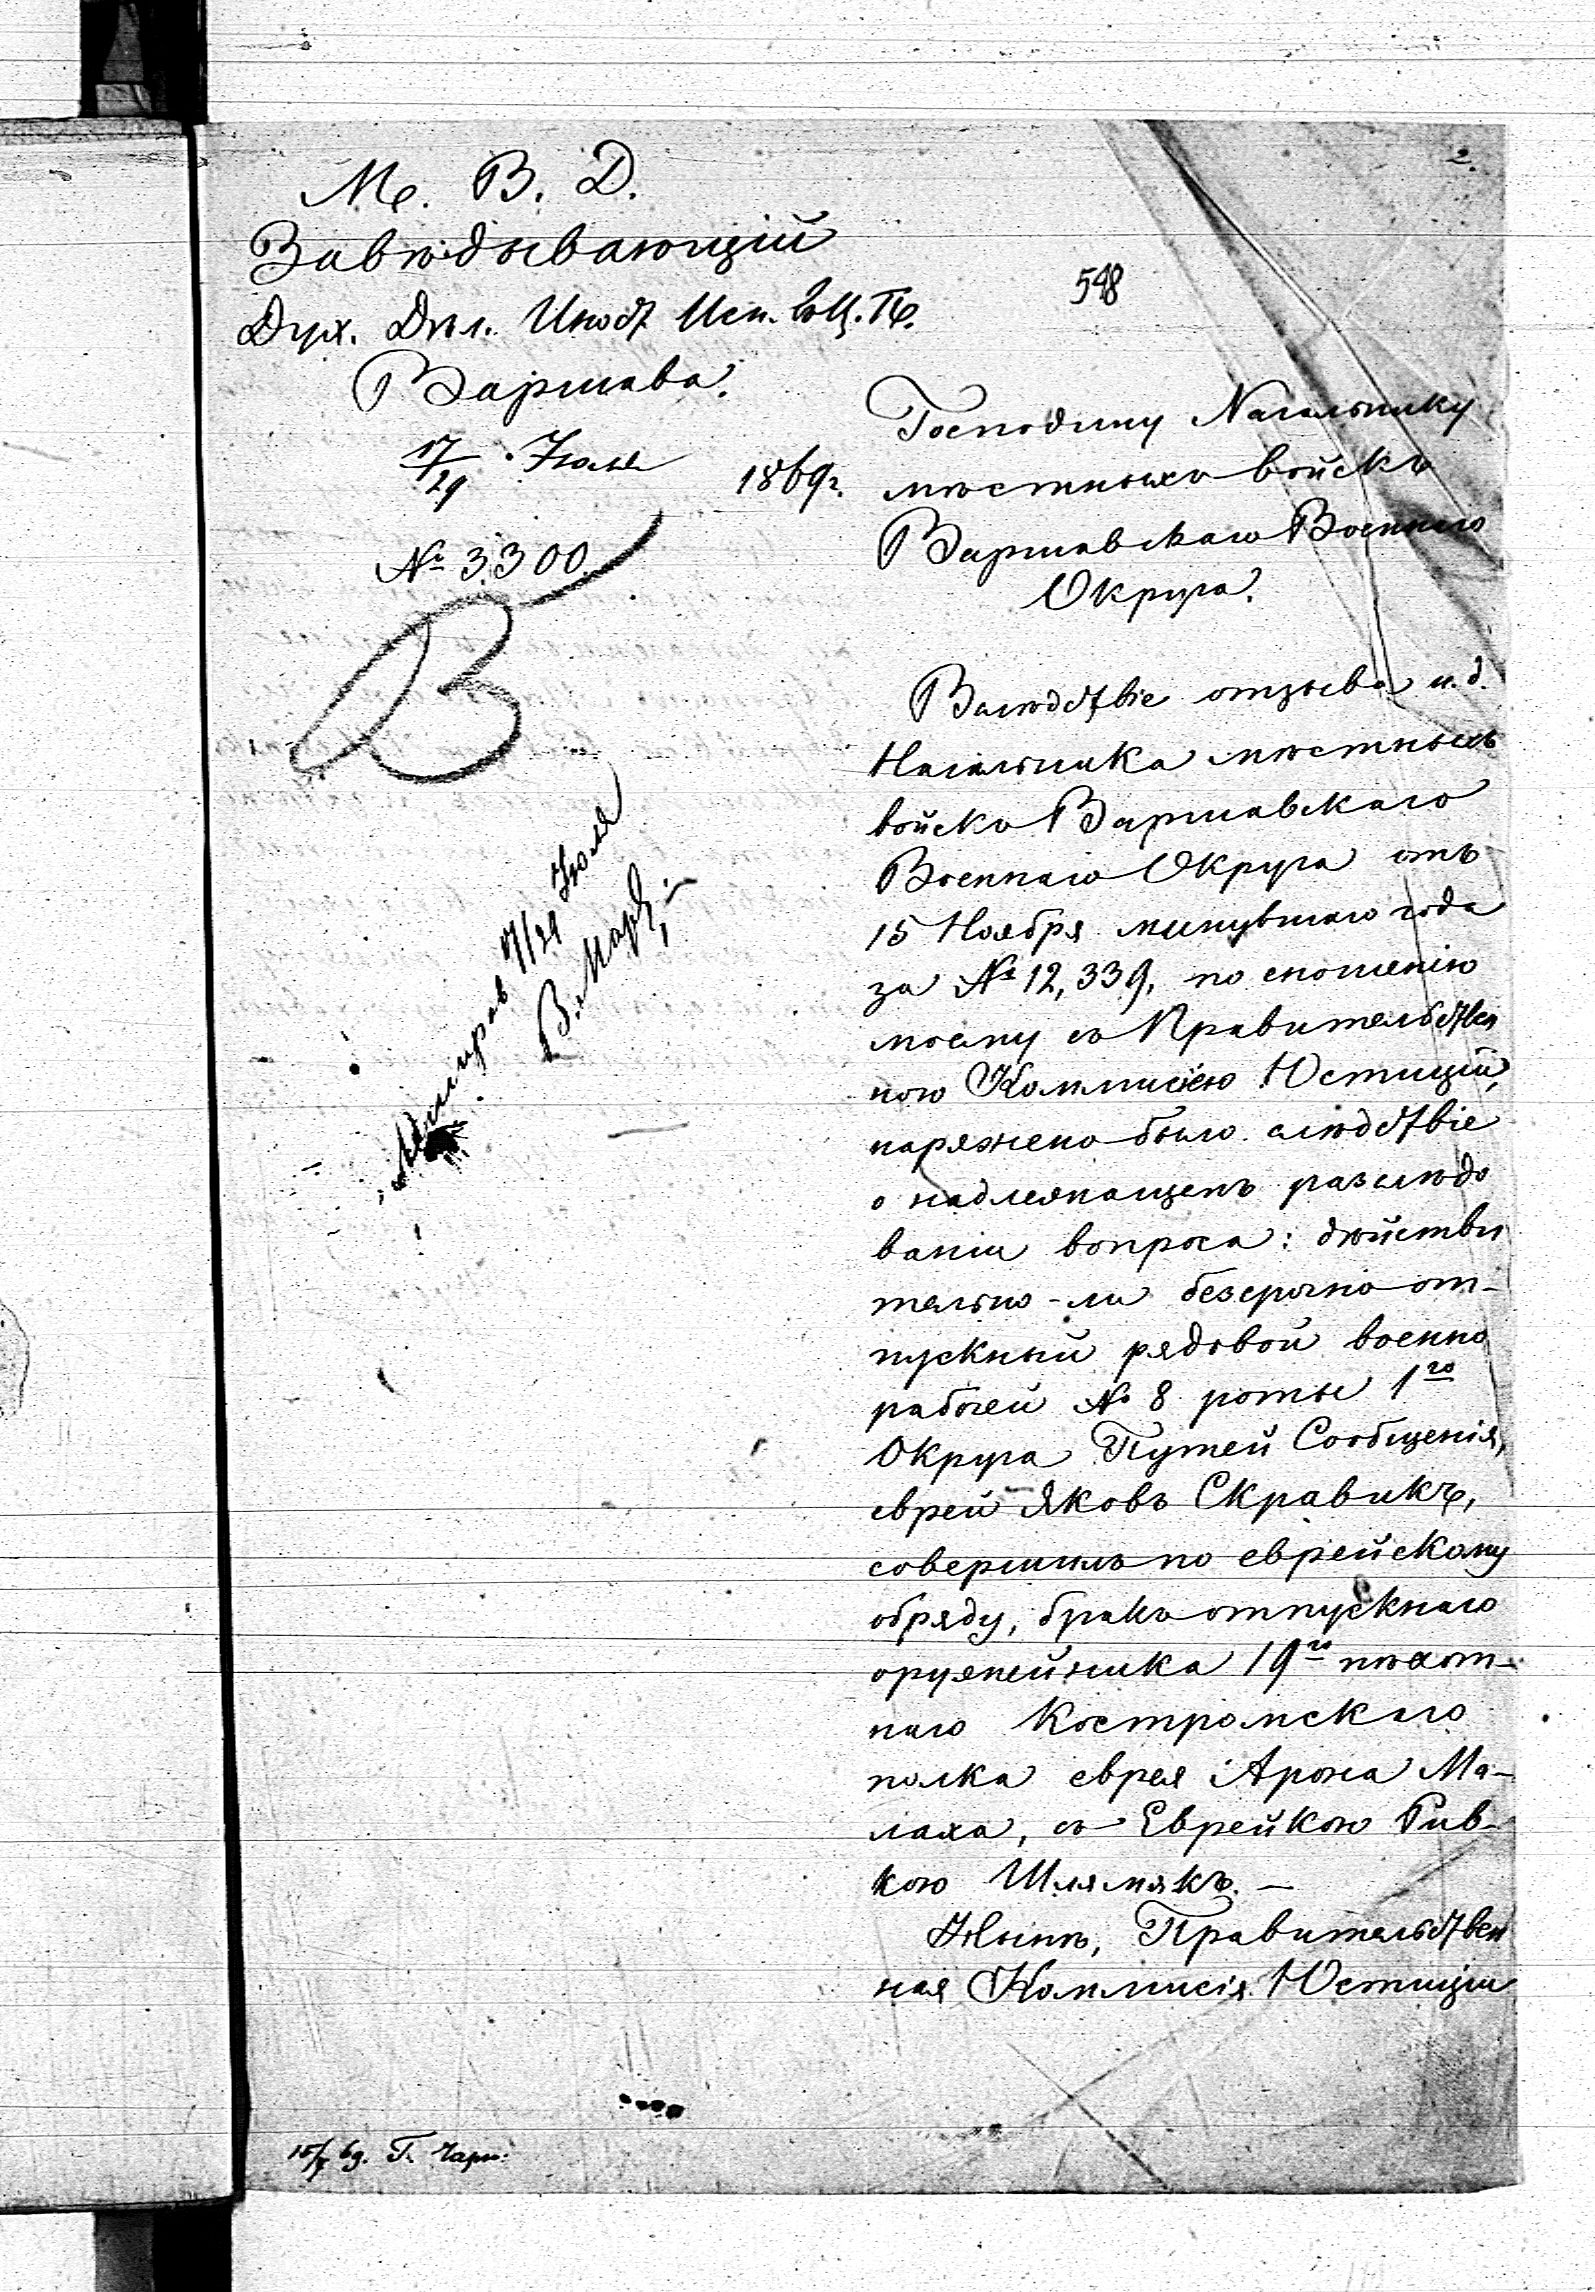 2.
М. В. Д.
Завѣдывающій
Дух. Дѣл. Иност Исп. въ Ц. П.
Варшава.
17/29 Іюля 1869 г.
№ 3300.
В
548
Господину Начальнику
мѣстныхъ войскъ
Варшавскаго Военнаго
Округа.
Вслѣдствіе отзыва и. д.
Начальника мѣстныхъ
войскъ Варшавскаго
Военнаго Округа отъ
15 Ноября минувшаго года
за № 12,339, по сношенію
моему съ Правительствен
ною Коммисіею Юстиціи,
наряжено было слѣдствіе
о надлежащемъ разслѣдо
ваніи вопроса: дѣйстви
тельно-ли безсрочно от-
пускный рядовой военно
рабочей № 8 роты 1го
Округа Путей Сообщенія,
еврей Яковъ Скравикъ,
совершилъ по еврейскому
обряду, бракъ отпускнаго
оружейника 19го пѣхот-
наго Костромскаго
полка еврея Арона Ма-
лаха, съ Еврейкою Рив-
кою Шлямякъ. —
Нынѣ, Правительствен
ная Коммисія Юстиціи
17/29 Іюля
15/X 69. Г. Чарн: